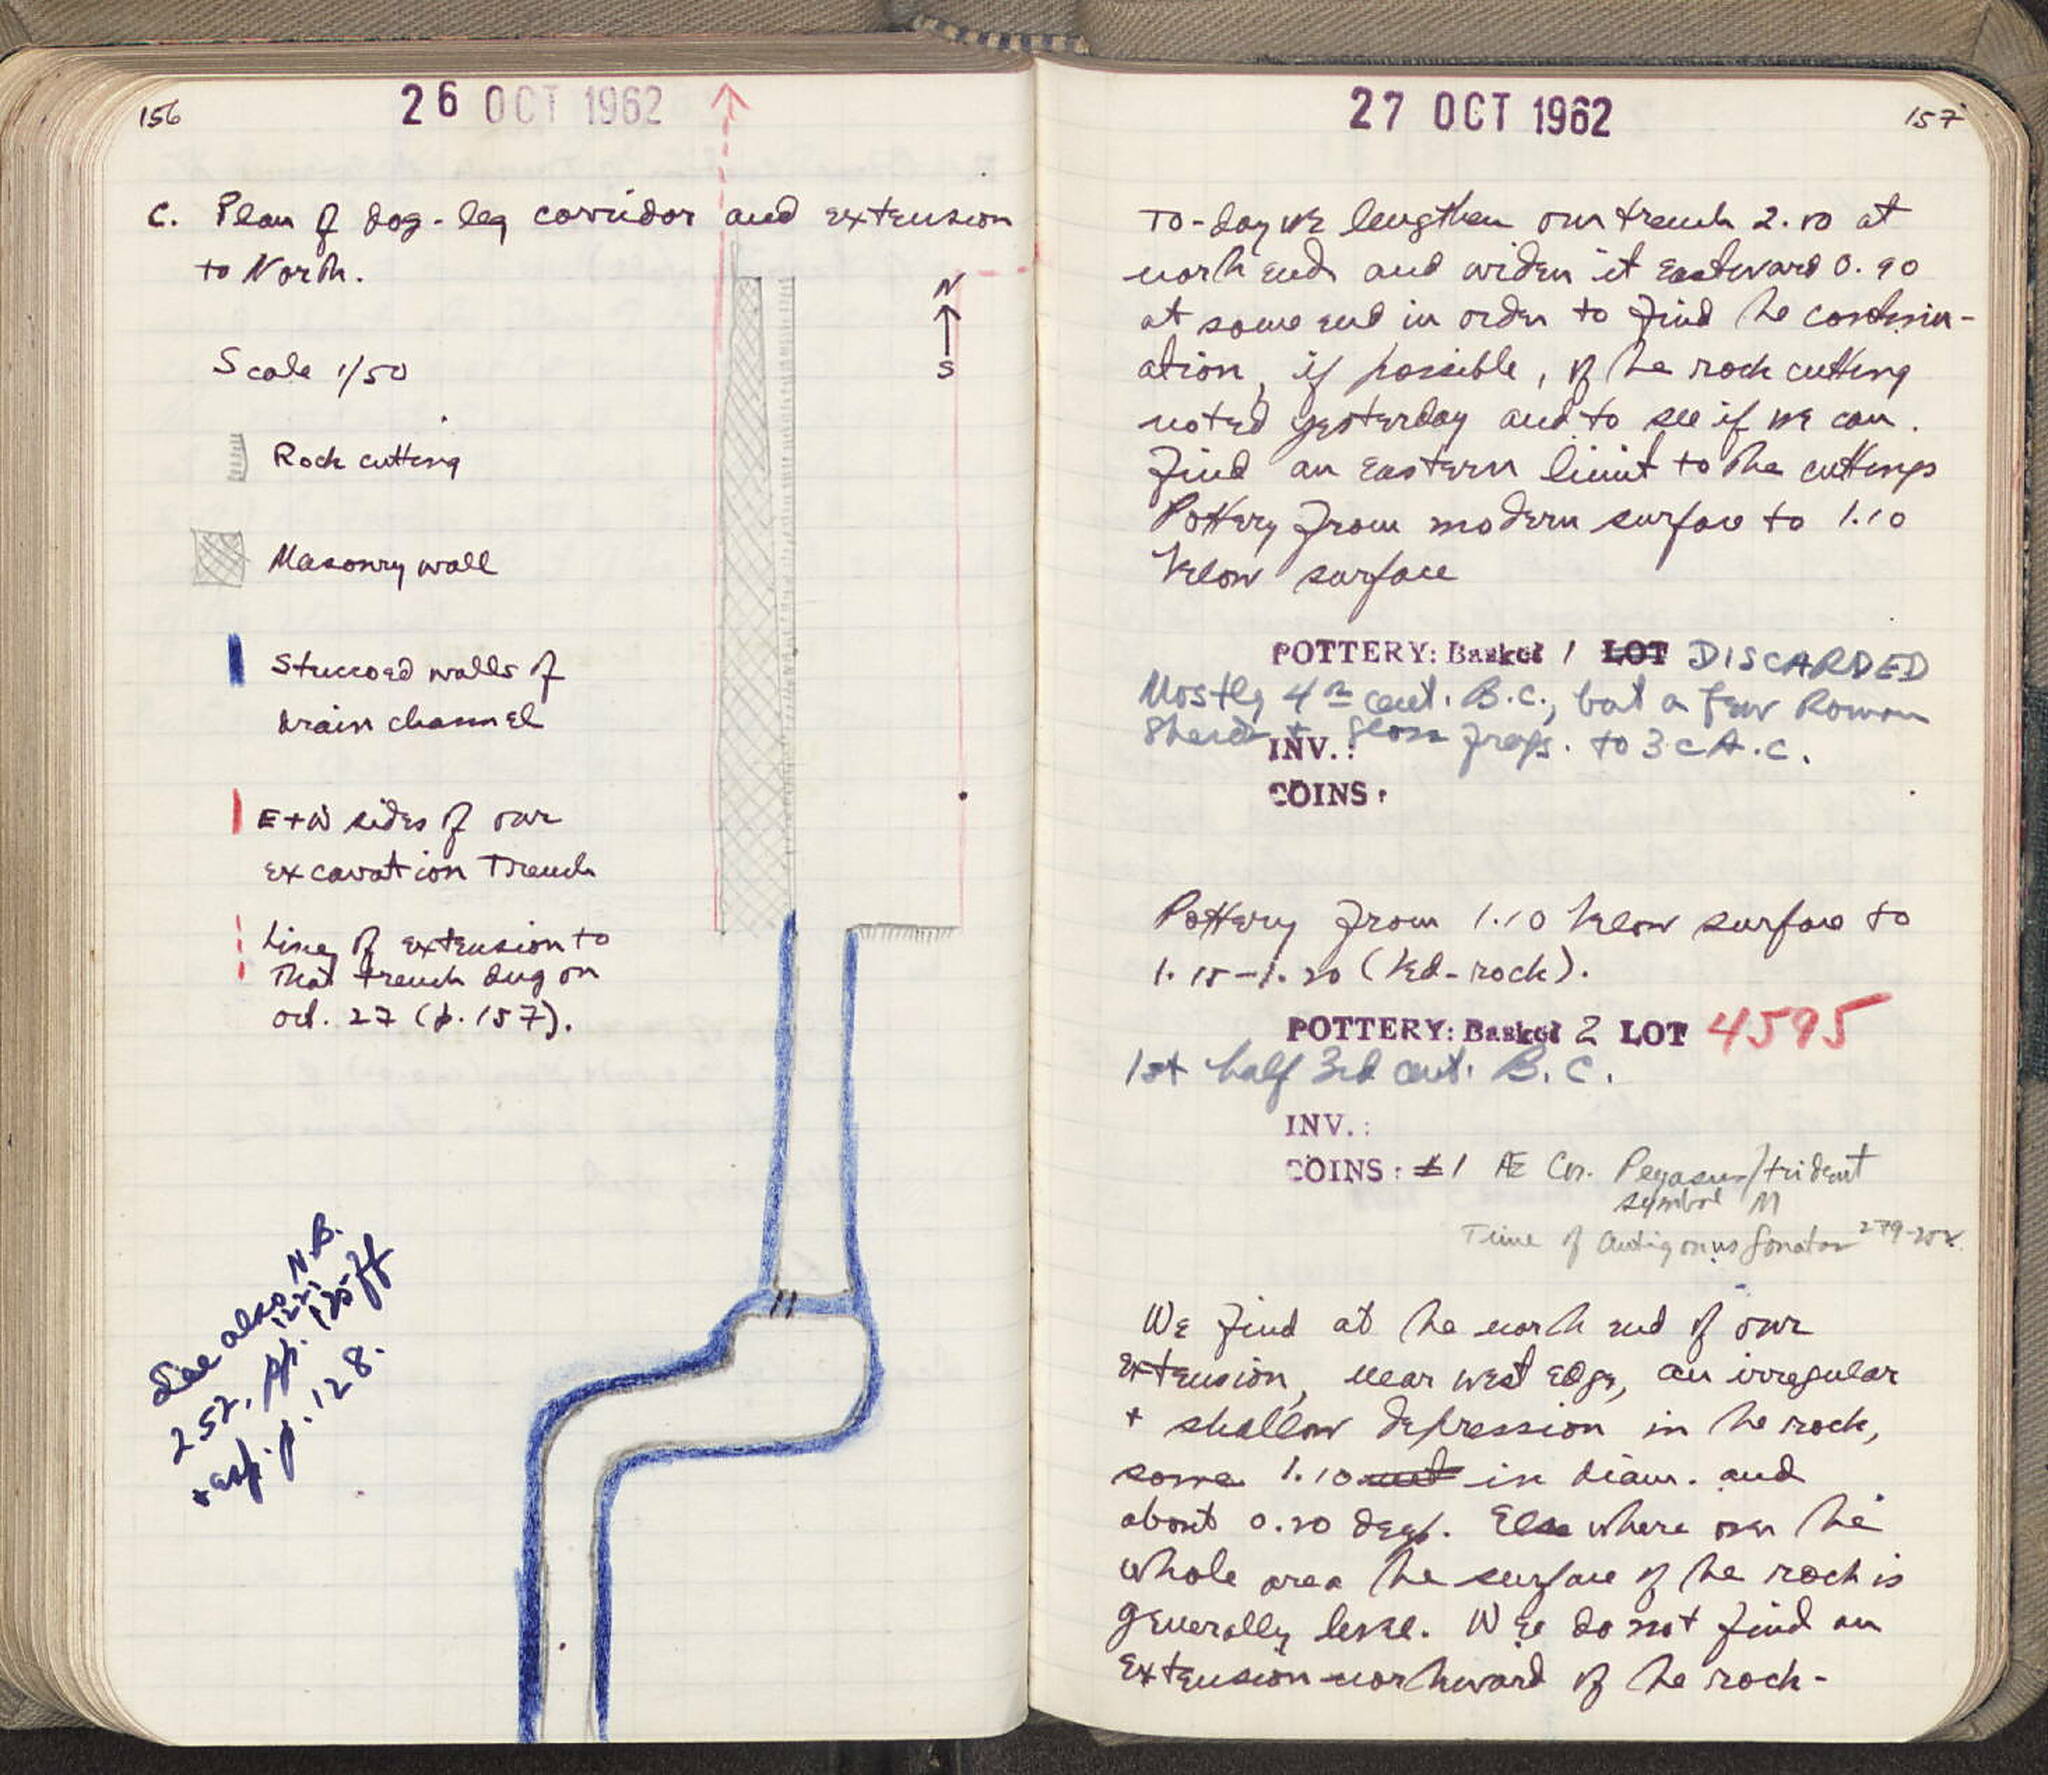 156
26 OCT 1962
C. Plan of dog-leg corridor and extension
to North.
N
S
Scale 1/50
Rock cutting
Masonry wall
Stuccoed walls of
drain channel
E + W sides of our
excavation trench
Line of extension to
that trench dug on
Oct. 27 (p. 157).
See also N.B.
252, pp. 125 ff
+ esp. p. 128.
157
27 OCT 1962
To-day we lengthen our trench 2.10 at
north end and widen it eastward 0.90
at same end in order to find the contin-
ation, if possible, of the rock cutting
noted yesterday and to see if we can
find an eastern limit to the cuttings
Pottery from modern surface to 1.10
below surface
POTTERY: Basket 1 LOT DISCARDED
Mostly 4th cent. B.C., but a few Roman
sherds + glass frags. to 3 c A.C.
INV.:
COINS:
Pottery from 1.10 below surface to
1.15-1.20 (bed-rock).
POTTERY: Basket 2 LOT 4595
1st half 3rd cent. B.C.
INV.:
COINS: 1 Æ Cor. Pegasus/trident
symbol M
Time of Antigonus Gonatas
We find at the north end of our
extension, near west edge, an irregular
+ shallow depression in the rock,
some 1.10 in diam. and
about 0.20 deep. Elsewhere over the
whole area the surface of the rock is
generally level. We do not find an
extension northward of the rock-